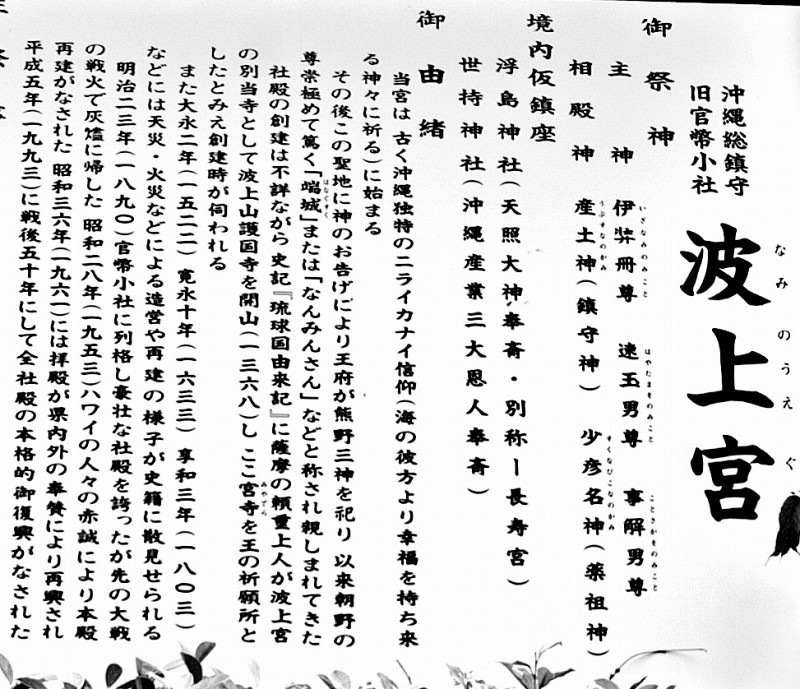 沖縄総鎮守
旧官幣小社
波上宮
なみのうえぐ
御祭神
主神 伊弉冊尊 速玉男尊 事解男尊
いざなみのみこと はやたまをのみこと ことさかをのみこと
相殿神 産土神(鎮守神) 少彦名神(薬祖神)
うぶすなのかみ すくなひこなのかみ
境内仮鎮座
浮島神社(天照大神奉斎・別称ー長寿宮)
世持神社(沖縄産業三大恩人奉斎)
御由緒
当宮は 古く沖縄独特のニライカナイ信仰(海の彼方より幸福を持ち来
る神々に祈る)に始まる
その後この聖地に神のお告げにより王府が熊野三神を祀り 以来朝野の
尊崇極めて篤く「端城」または「なんみんさん」などと称され親しまれてきた
はなぐすく
社殿の創建は不詳ながら 史記『琉球国由来記』に薩摩の頼重上人が波上宮
の別当寺として波上山護国寺を開山(一三六八)し ここ宮寺を王の祈願所と
みやでら
したとみえ創建時が伺われる
また大永二年(一五二二) 寛永十年(一六三三) 享和三年(一八〇三)
などには天災・火災などによる造営や再建の様子が史籍に散見せられる
明治二三年(一八九〇)官幣小社に列格し豪壮な社殿を誇ったが先の大戦
の戦火で灰燼に帰した 昭和二八年(一九五三)ハワイの人々の赤誠により本殿
再建がなされた 昭和三六年(一九六一)には拝殿が県内外の奉賛により再興され
平成五年(一九九三)に戦後五十年にして全社殿の本格的御復興がなされた